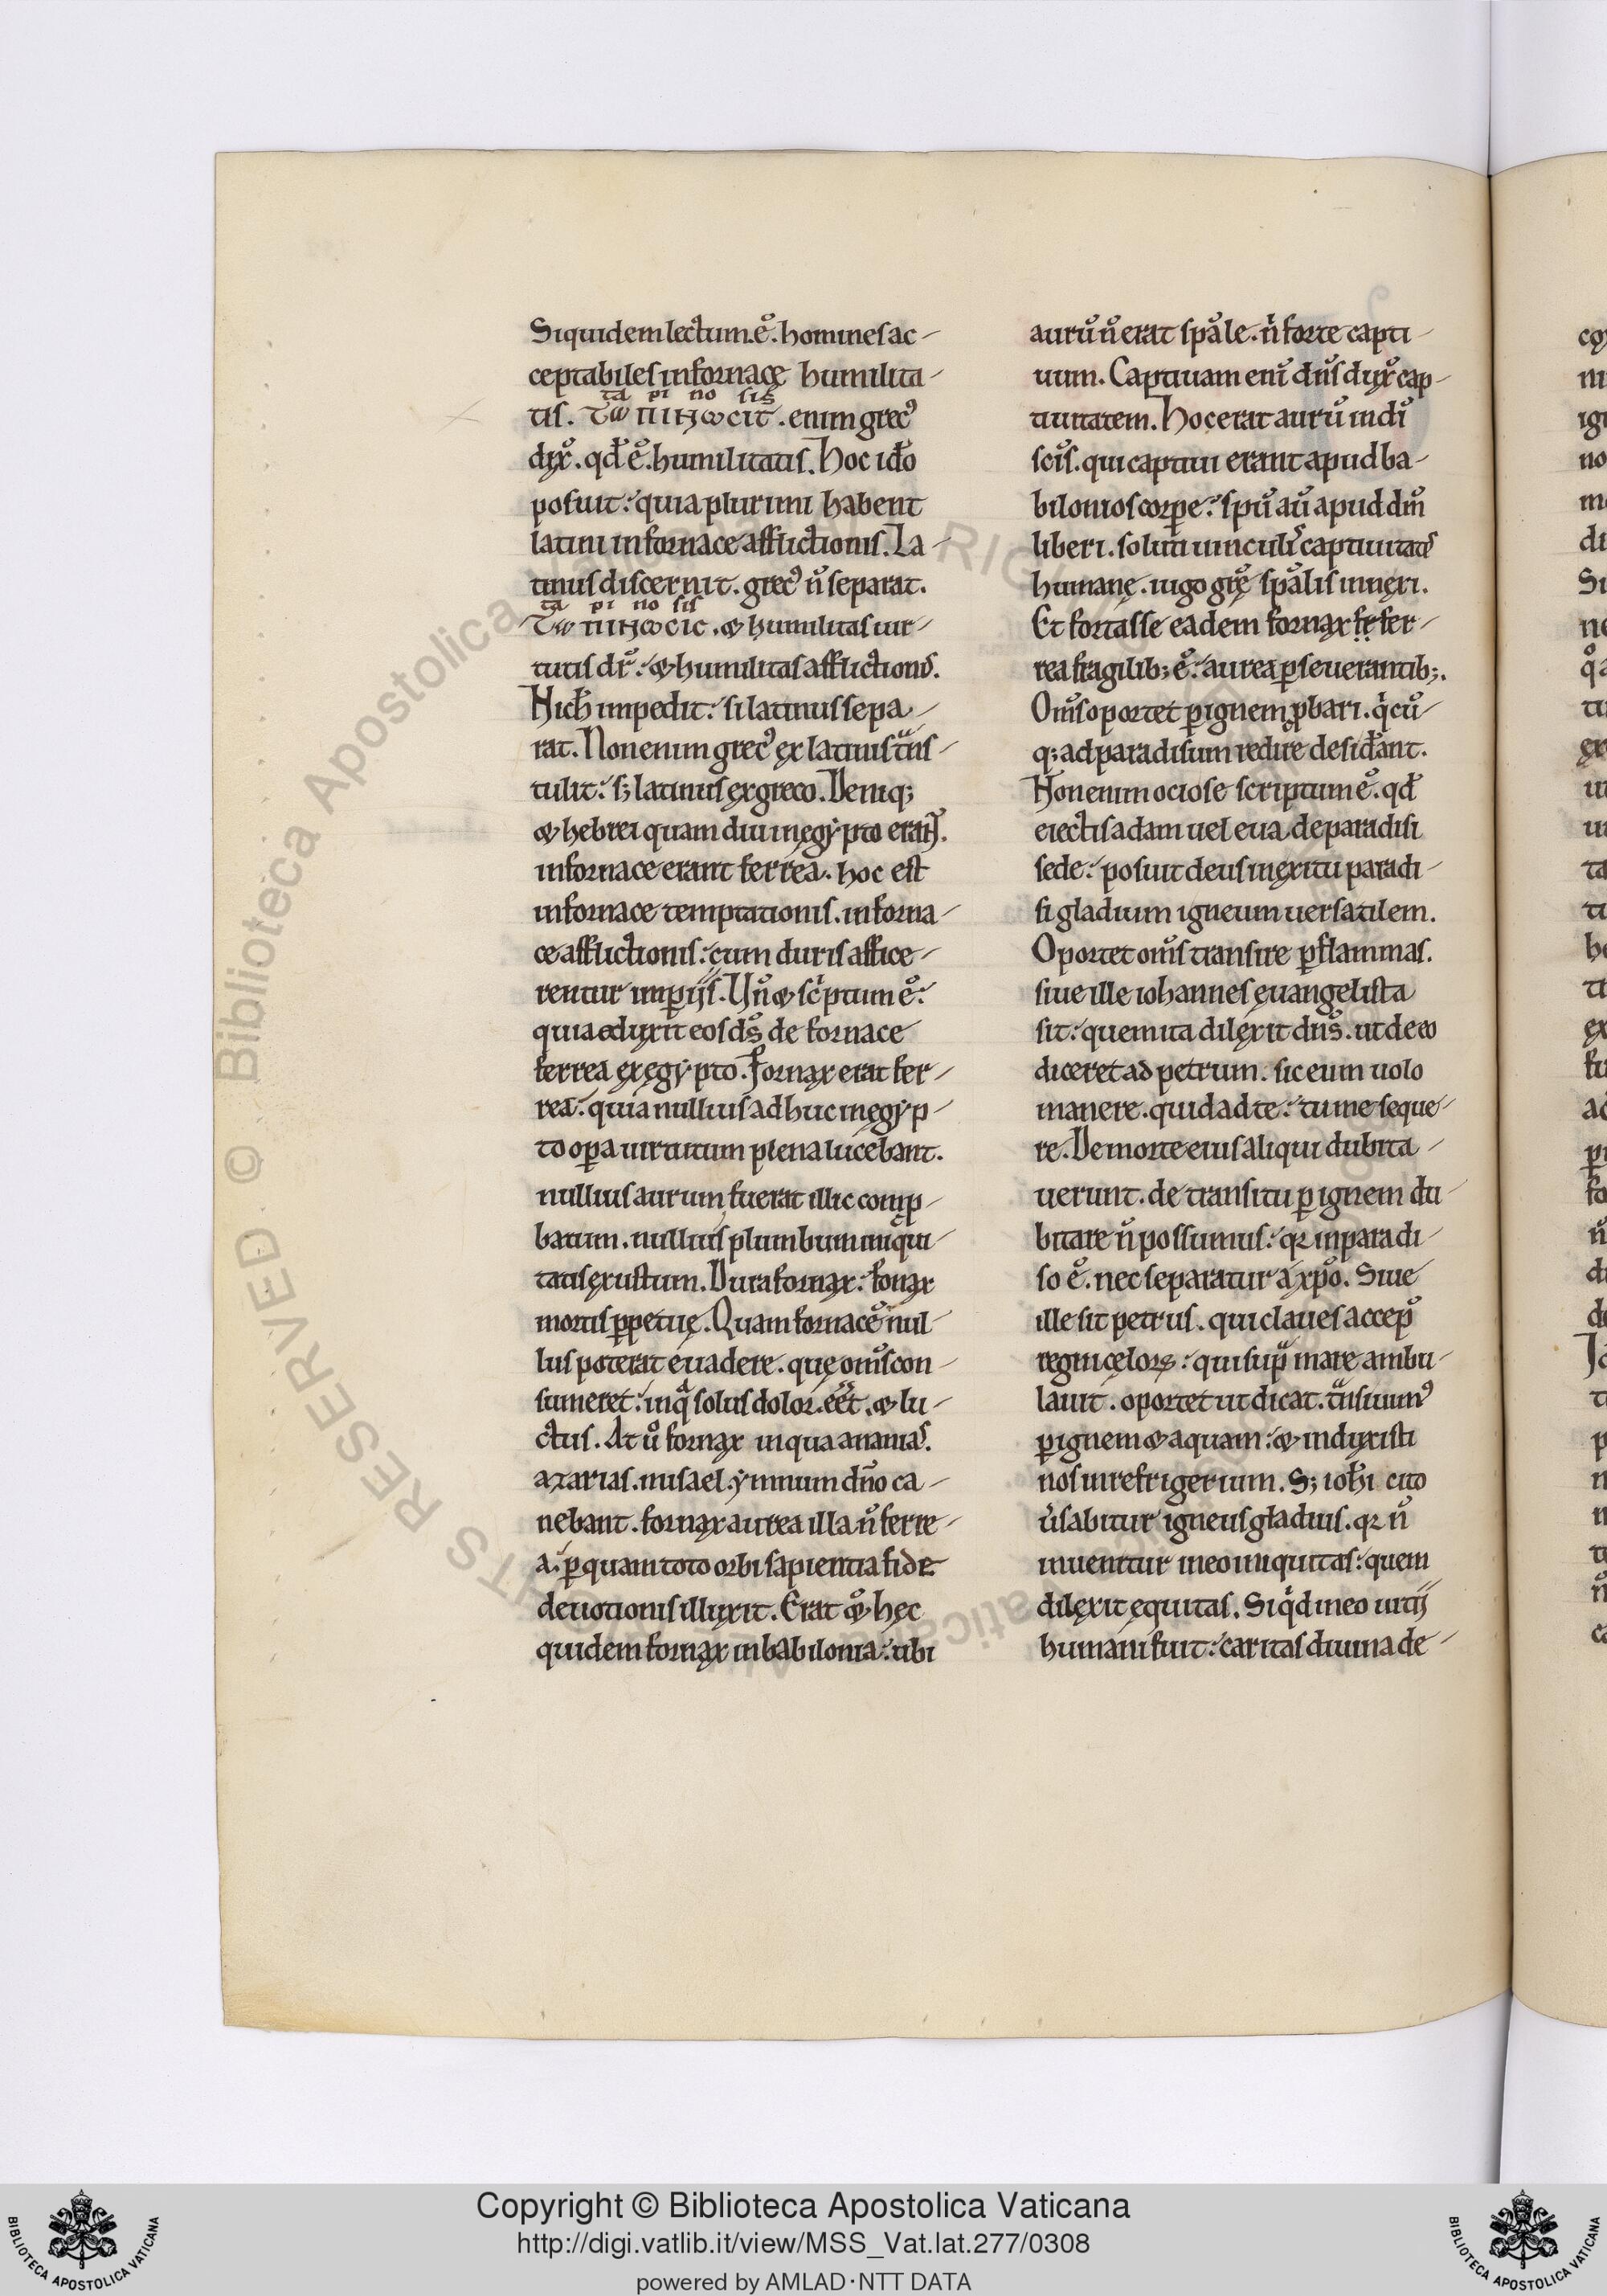 Siquidem lectum.ē. homines ac-
ceptabiles in fornacę humilita-
ta pi no sis
tis. ΤѠ ΠΙΗѠCIΤ. enim grec⁹
dix̄. qd̄ ē. humilitatis. Hoc id̄o
posuit: quia plurimi habent
latini in fornace afflictionis. La-
tinus discernit. grec⁹ n̄ separat.
ta pi no sis
ΤѠ ΠΙΗѠCIC. & humilitas uir-
tutis dr̄: & humilitas afflictionis.
Nich̄ impedit: si latinus sepa-
rat. Non enim grec⁹ ex latinis tͣns-
tulit: s; latinus ex greco. Deniq;
& hebrei quam diu in egẏpto erant.
in fornace erant ferrea. hoc est
in fornace temptationis. in forna-
ce afflictionis: cum duris affice-
rentur imp̱iis. Vn̄ & scͥptum ē:
quia eduxit eos dś de fornace
ferrea ex egẏpto. Fornax erat fer-
rea: quia nullius adhuc in egẏp-
to op̱a uirtutum plena lucebant.
nullius aurum fuerat illic comp̱-
batum. nullius plumbum iniqui-
tatis exustum. Dura fornax: fonax
mortis p̱petuę. Quam fornacē nul-
lus poterat euadere. quę om̄s con-
sumeret: in qͣ solus dolor. eēt. & lu-
ctus. At ū fornax in qua ananias.
azarias. misael. ẏmnum dn̄o ca-
nebant. fornax aurea illa n̄ ferre-
a. p̱ quam toto orbi sapientia fide
deuotionis illuxit. Erat &̄ hęc
quidem fornax in babilonia: ubi
aurū n̄ erat spāle. n̄ forte capti-
uum. Captiuam enī dn̄s dux̄ cap-
tiuitatem. Hoc erat aurū in di
scīs. qui captiui erant apud ba-
bilonios corp̱e: spū aū apud dm̄
liberi. soluti uinculis captiuitatis
humanę. iugo grę̄ spālis inneri.
Et fortasse eadem fornax fe fer-
rea fragilib; ē: aurea p̱seuerantib;.
Om̄s oportet p̱ ignem p̱bari. qͥcū-
q; ad paradisum redire desid̄ant.
Non enim ociose scriptum ē. qd̄
eiectis adam uel eua de paradisi
sede: posuit deus in exitu paradi-
si gladium igneum uersatilem.
Oportet om̄s transire p̱ flammas.
siue ille iohannes euangelista
sit: quem ita dilexit dn̄s. ut de eo
diceret ad petrum. sic eum uolo
manere. quid ad te: tu me seque-
re. De morte eius aliqui dubita-
uerunt. de transitu p̱ ignem du-
bitare n̄ possumus: qꝛ in paradi-
so ē. nec separatur a xp̄o. Siue
ille sit petrus. qui claues accep̄
regni celoꝝ: qui supͣ mare ambu-
lauit. oportet ut dicat. tͣnsiuim⁹
p̱ ignem & aquam: & induxisti
nos in refrigerium. S; ioh̄i cito
ūsabitur igneus gladius. qꝛ n̄
inuenitur in eo iniquitas: quem
dilexit equitas. Si qͥd in eo uitii
humani fuit: caritas diuina de-
Copyright © Biblioteca Apostolica Vaticana
http://digi.vatlib.it/view/MSS_Vat.lat.277/0308
powered by AMLAD·NTT DATA